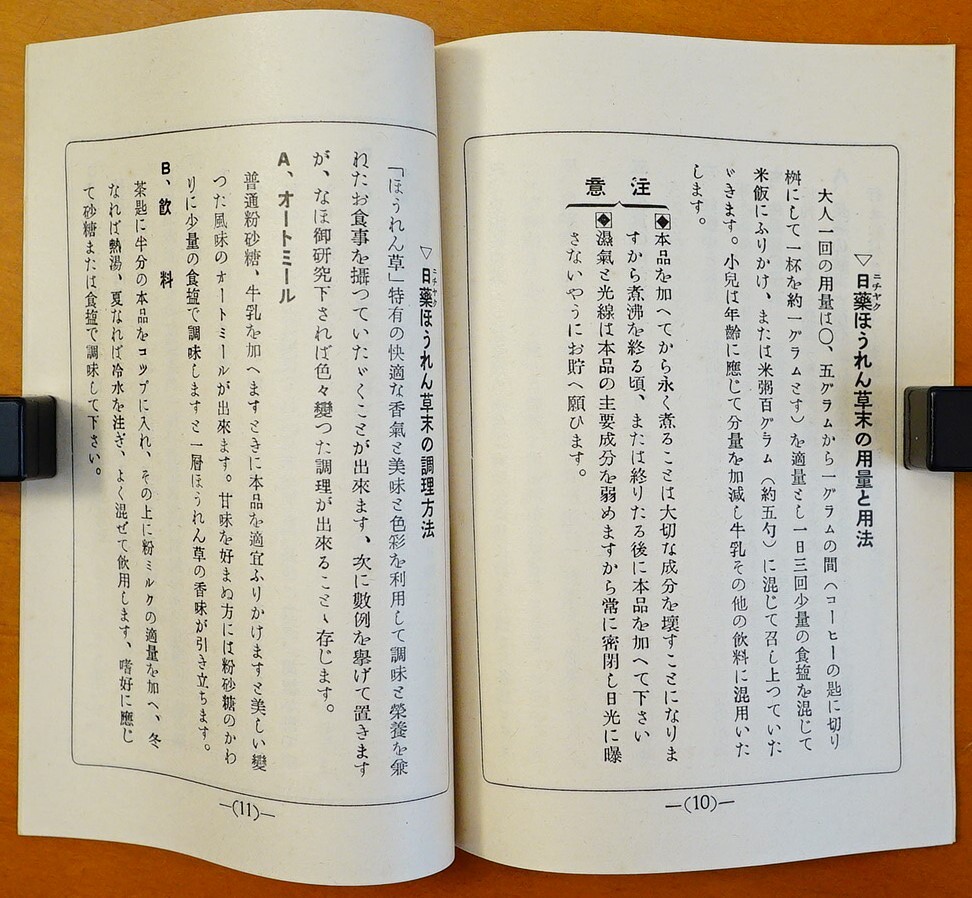 ▽日藥ほうれん草末の用量と用法
ニチヤク
大人一回の用量は〇、五グラムから一グラムの間（コーヒーの匙に切り
桝にして一杯を約一グラムとす）を適量とし一日三回少量の食塩を混じて
米飯にふりかけ、または米粥百グラム（約五勺）に混じて召し上つていた
ゞきます。小兒は年齡に應じて分量を加減し牛乳その他の飲料に混用いた
します。
注意
◆本品を加へてから永く煮ることは大切な成分を壞すことになりま
すから煮沸を終る頃、または終りたる後に本品を加へて下さい
◆濕氣と光線は本品の主要成分を弱めますから常に密閉し日光に曝
さないやうにお貯へ願ひます。
―(10)―
▽日藥ほうれん草末の調理方法
ニチヤク
「ほうれん草」特有の快適な香氣と美味と色彩を利用して調味と榮養を兼
ねたお食事を攝つていたゞくことが出來ます、次に數例を擧げて置きます
が、なほ御研究下されば色々變つた調理が出來ることゝ存じます。
A、オートミール
普通粉砂糖、牛乳を加へますときに本品を適宜ふりかけますと美しい變
つた風味のオートミールが出來ます。甘味を好まぬ方には粉砂糖のかわ
りに少量の食塩で調味しますと一層ほうれん草の香味が引き立ちます。
B、飲料
茶匙に半分の本品をコップに入れ、その上に粉ミルクの適量を加へ、冬
なれば熱湯、夏なれば冷水を注ぎ、よく混ぜて飲用します、嗜好に應じ
て砂糖または食塩で調味して下さい。
―(11)―